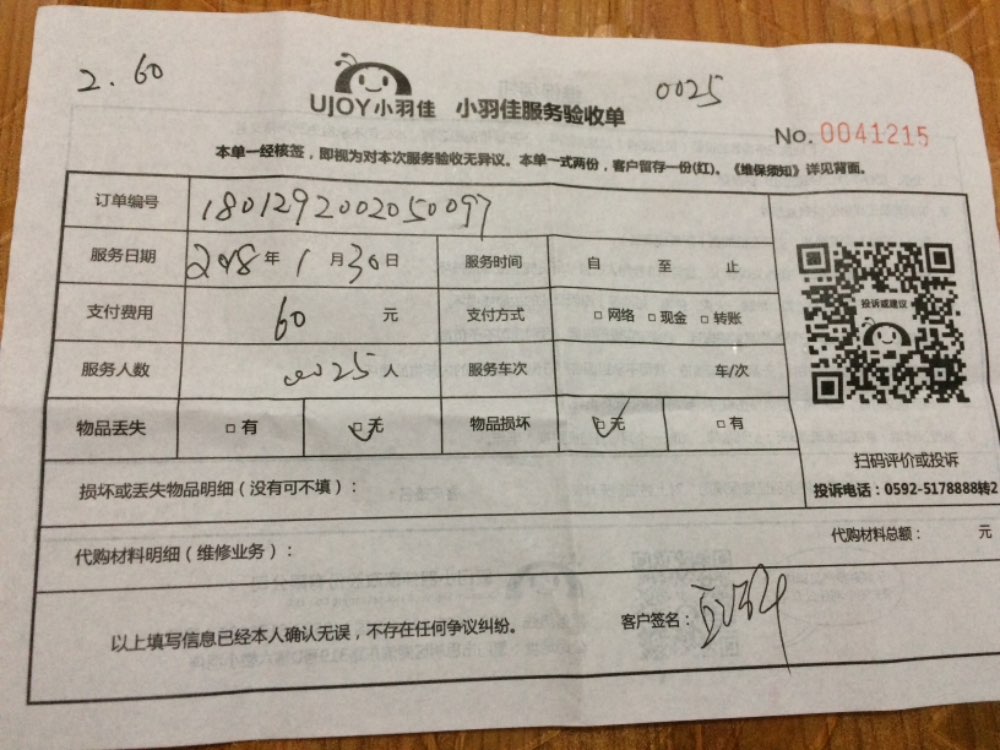 2.60
0025
UJOY小羽佳 小羽佳服务验收单
No. 0041215
本单一经核签，即视为对本次服务验收无异议。本单一式两份，客户留存一份(红)。《维保须知》详见背面。
订单编号 1801292002050097
服务日期 2018年1月30日 服务时间 自 至 止
支付费用 60 元 支付方式 □网络 □现金 □转账
投诉或建议
服务人数 0025人 服务车次 车/次
物品丢失 □有 □无 物品损坏 □无 □有
扫码评价或投诉
损坏或丢失物品明细（没有可不填）：
投诉电话：0592-5178888转2
代购材料明细（维修业务）： 代购材料总额： 元
以上填写信息已经本人确认无误，不存在任何争议纠纷。 客户签名：